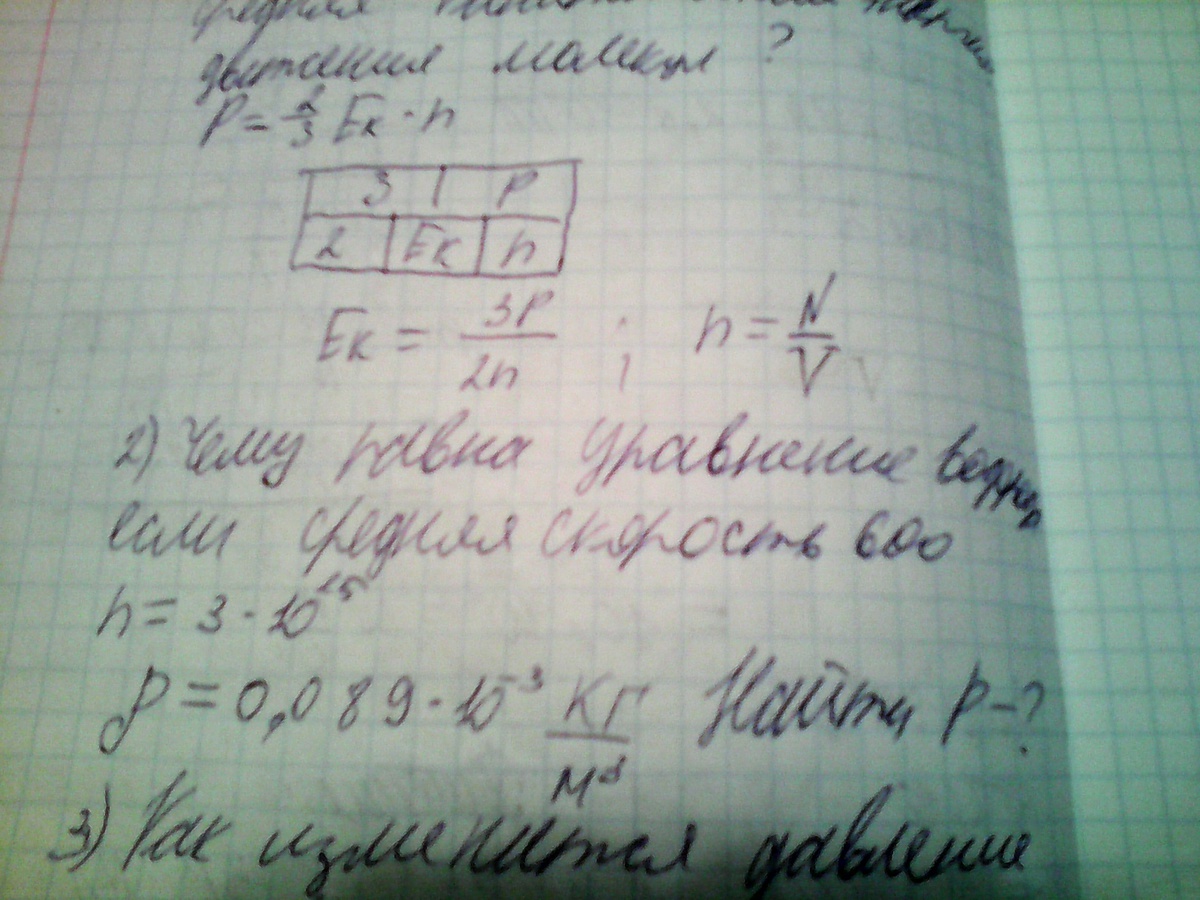 средняя
движения молекул ?
P = 2/3 Eк · n
3 | P
2 | Eк | n
Eк = 3P/2n ; n = N/V
2) Чему равна уравнение
если средняя скорость 600
n = 3 · 10²⁵
ρ = 0,089 · 10⁻³ кг/м³ Найти P - ?
3) Как изменится давление